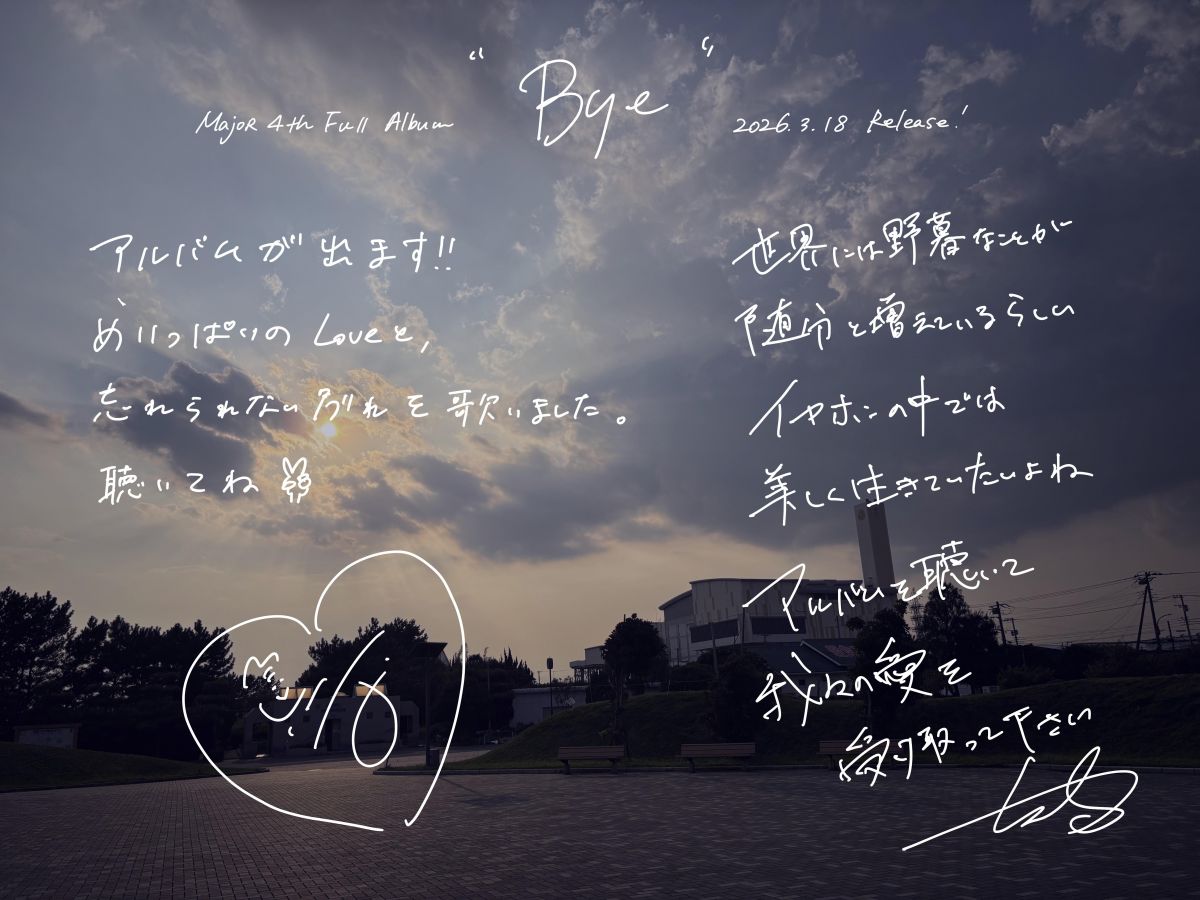 Major 4th Full Album
“Bye”
2026.3.18 Release!
アルバムが出ます!!
めいっぱいのLoveと,
忘れられない別れを歌いました。
聴いてね✌
世界には野暮なことが
随分と増えているらしい
イヤホンの中では
美しく生きていたいよね
アルバムを聴いて
我々の愛を
受け取って下さい